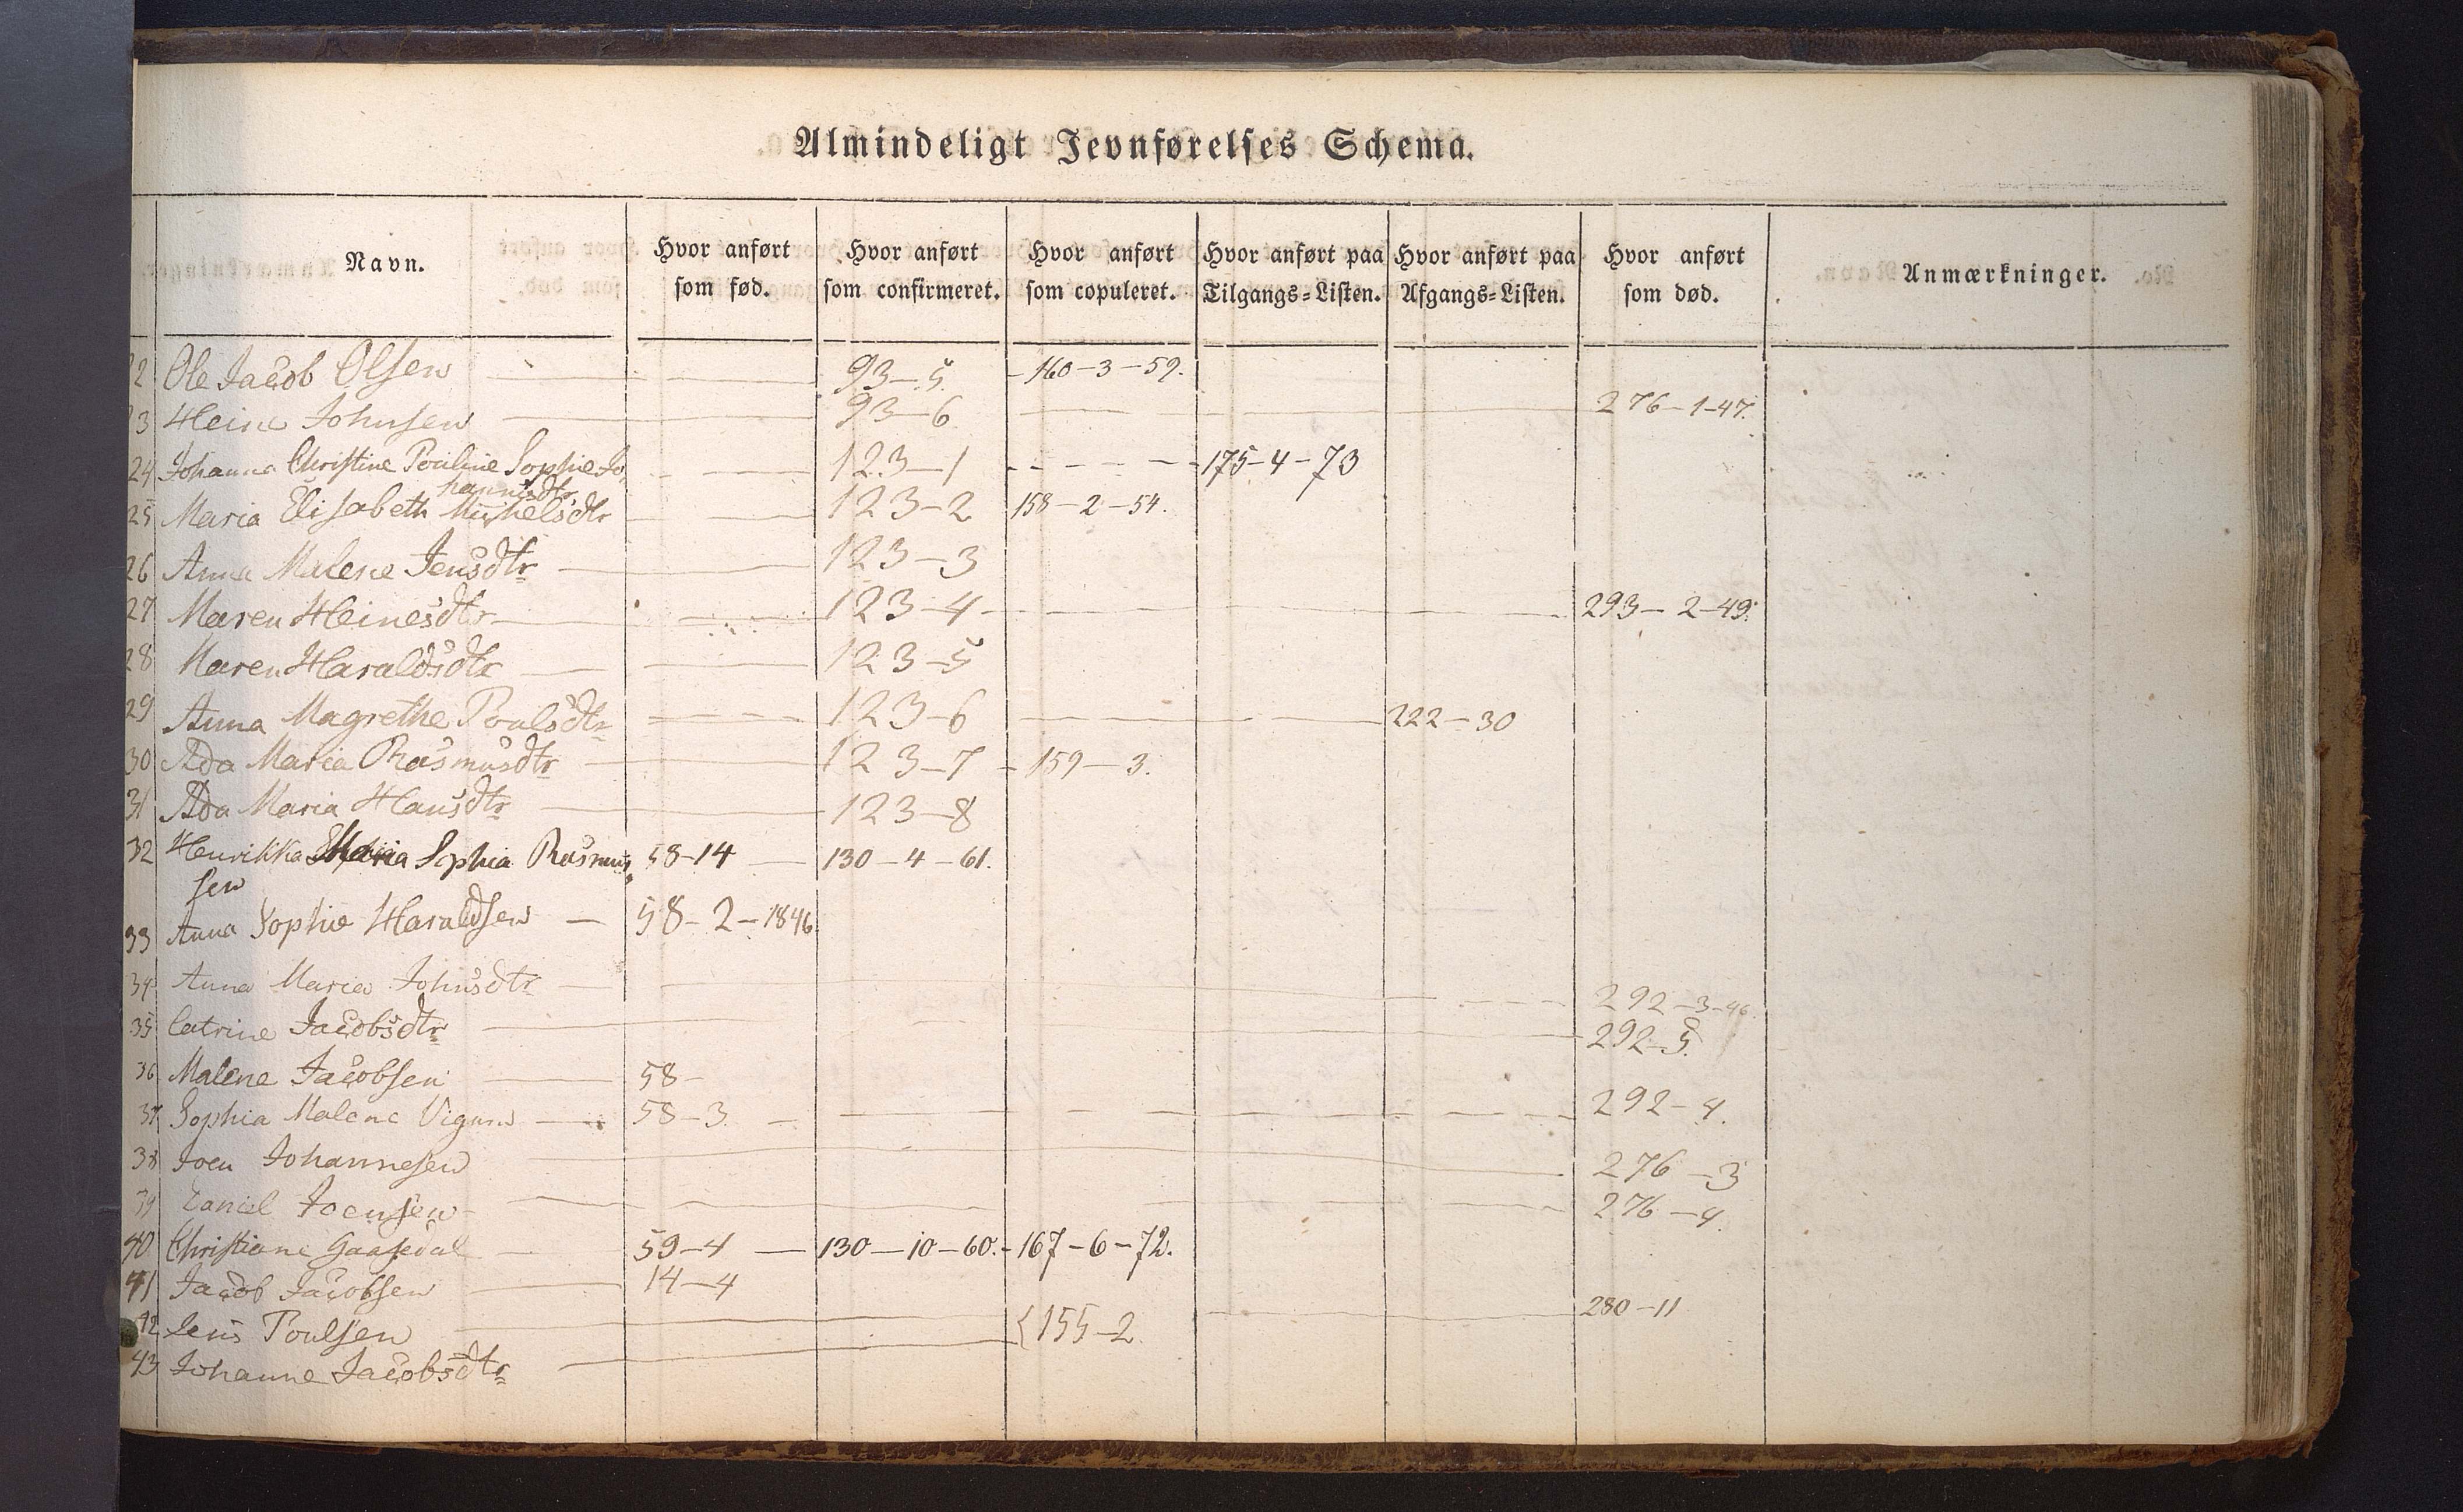 Almindeligt Jevnførelses Schema.
Navn. Hvor anført som fød. Hvor anført som confirmeret. Hvor anført som copuleret. Hvor anført paa Tilgangs-Listen. Hvor anført paa Afgangs-Listen. Hvor anført som død. Anmærkninger.
2 Ole Jacob Olsen 93-5. 160-3-59.
3 Heine Johnsen 93-6 276-1-47.
24 Johanna Christine Pouline Sophie Jo
hannisdtr 123-1 175-4-73
25 Maria Elisabeth Michelsdtr 123-2 158-2-54.
26 Anna Malene Jensdtr 123-3
27 Maren Heinesdtr 123-4 293-2-49.
28 Maren Haraldsdtr 123-5
29 Anna Magrethe Poulsdtr 123-6 222-30
30 Ada Maria Rasmusdtr 123-7 159-3.
31 Ada Maria Hansdtr 123-8
32 Henrikka Maria Sophia Rasmus 58-14 130-4-61.
sen
33 Anna Sophie Haraldsen 58-2-1846.
34 Anna Maria Johnsdtr 292-3-46.
35 Catrine Jacobsdtr 292-5.
36 Malene Jacobsen 58-
37 Sophia Malene 58-3. 292-4.
38 Joen Johannesen 276-3
39 Daniel Joensen 276-4.
40 Christiane Gaasedal 59-4 130-10-60. 167-6-72.
41 Jacob Jacobsen 14-4
42 Jens Poulsen {155-2. 280-11
43 Johanne Jacobsdtr